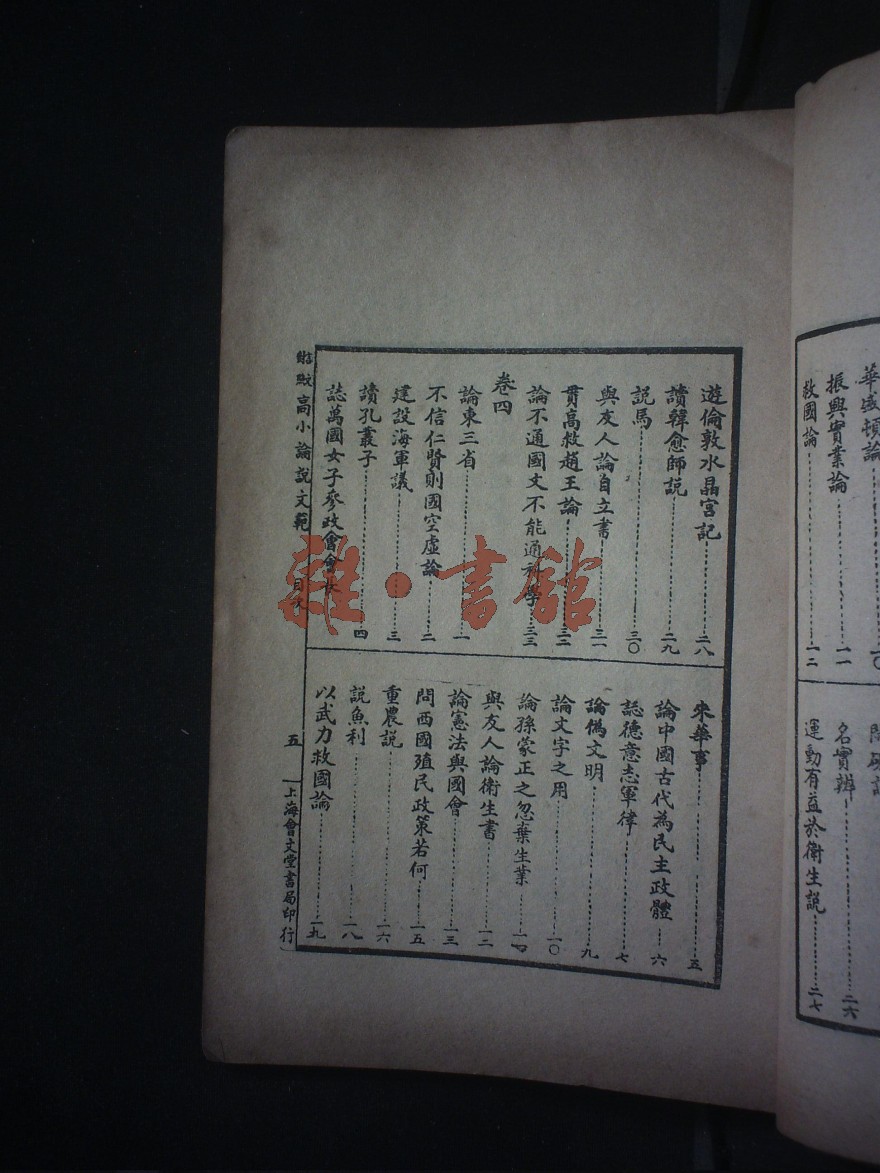 華盛頓論
振興實業論……一一
救國論……一二
名實辨……二六
運動有益於衛生說……二七
遊倫敦水晶宮記……二八
讀韓愈師說……二九
說馬……三〇
與友人論自立書……三一
貫高救趙王論……三二
論不通國文不能通科學……三三
卷四
論東三省……一
不信仁賢則國空虛論……二
建設海軍議……三
讀孔叢子……四
誌萬國女子參政會會長
來華事……五
論中國古代為民主政體……六
誌德意志軍律……七
論偽文明……九
論文字之用……一〇
論孫蒙正之忽棄生業……一四
與友人論衛生書……一二
論憲法與國會……一三
問西國殖民政策若何……一五
重農說……一六
說魚利……一八
以武力救國論……一九
高小論說文範 目次 五 上海會文堂書局印行
雜·書館